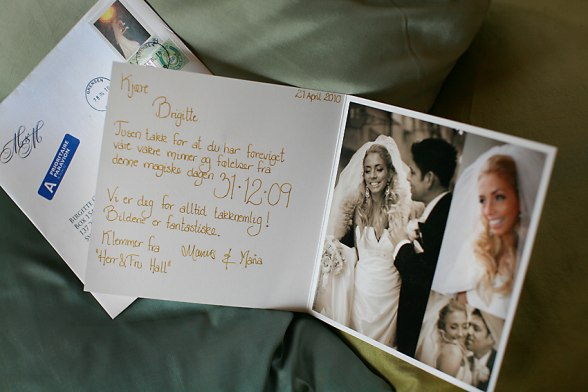 21 April 2010
Kjære
Brigitte
Tusen takk for at du har foreviget
våre vakre minner og følelser fra
denne magiske dagen 31·12·09
Vi er deg for alltid takknemlig!
Bildene er fantastiske.
Klemmer fra
& Maria
"Herr & Fru Hall"
A PRIORITAIRE
PAR AVION
BRIGITTE
BOX